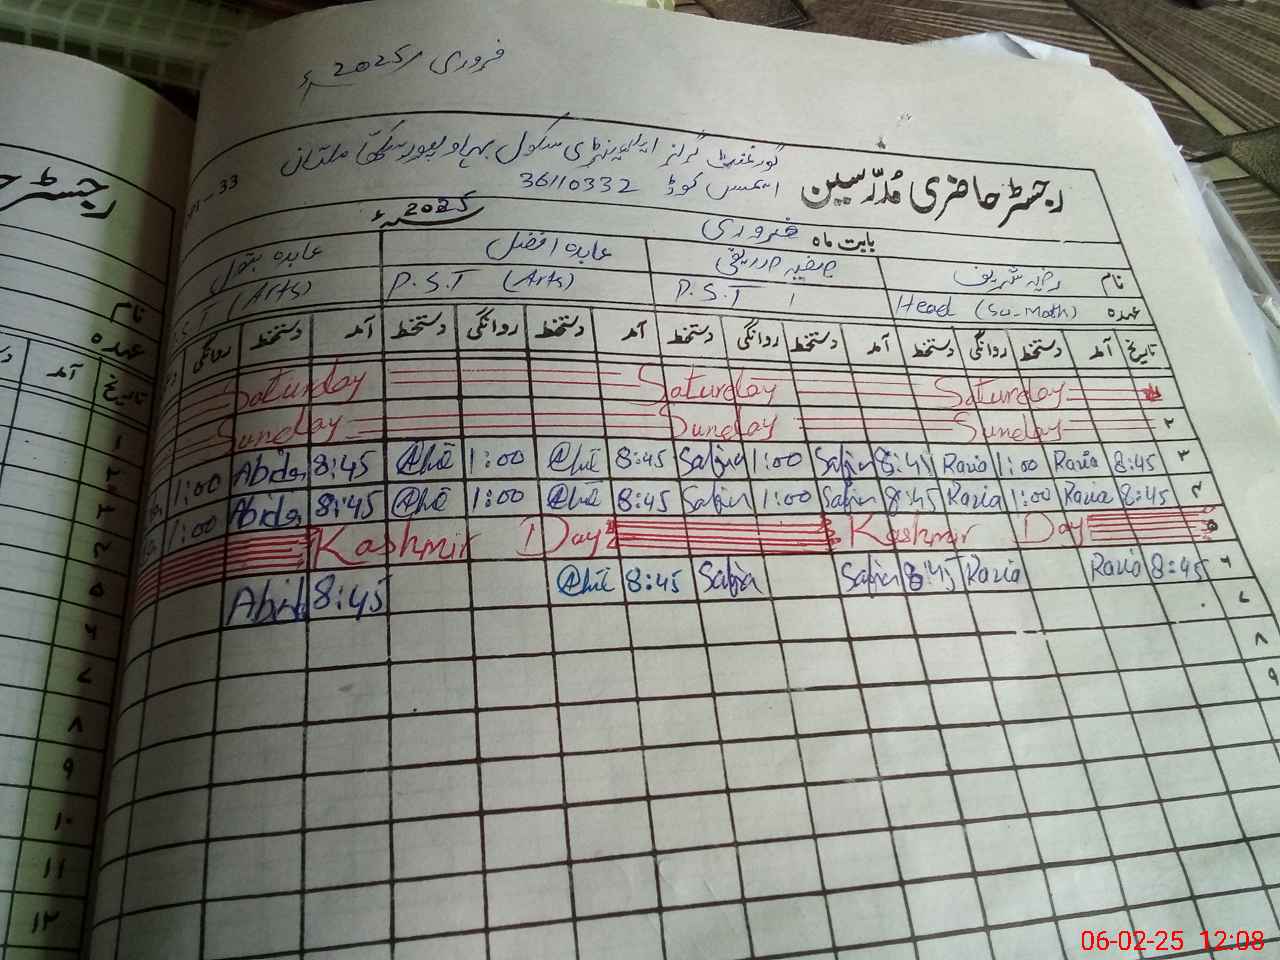 فروری 2025ء
گورنمنٹ گرلز ایلیمنٹری سکول بہاولپور سکھا ملتان
رجسٹر حاضری مُدرّسین
ایمس کوڈ 36110332
33
بابت ماہ فروری 2025ء
نام رضیہ شریف صفیہ صدیقی عابدہ افضل عابدہ بتول
عہدہ Head (Sci-Math) P.S.T P.S.T (Arts) (Arts)
تاریخ آمد دستخط روانگی دستخط آمد دستخط روانگی دستخط آمد دستخط روانگی دستخط آمد دستخط روانگی
Saturday Saturday Saturday
۲ Sunday Sunday Sunday
۳ 8:45 Razia 1:00 Razia 8:45 Safia 1:00 Safia 8:45 1:00 8:45 Abida 1:00
۴ 8:45 Razia 1:00 Razia 8:45 Safia 1:00 Safia 8:45 1:00 8:45 Abida 1:00
۵ Kashmir Day Kashmir Day
۶ 8:45 Razia Razia 8:45 Safia Safia 8:45 8:45 Abida
۷
۸
۹
رجسٹر
نام
عہدہ
تاریخ آمد
۱
۲
۳
۴
۵
۶
۷
۸
۹
۱۰
۱۱
۱۲
06-02-25 12:08